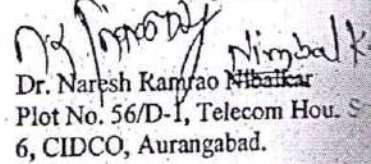 Nimbalk
Dr. Naresh Ramrao Nibalkar
Plot No. 56/D-1, Telecom Hou. S
6, CIDCO, Aurangabad.